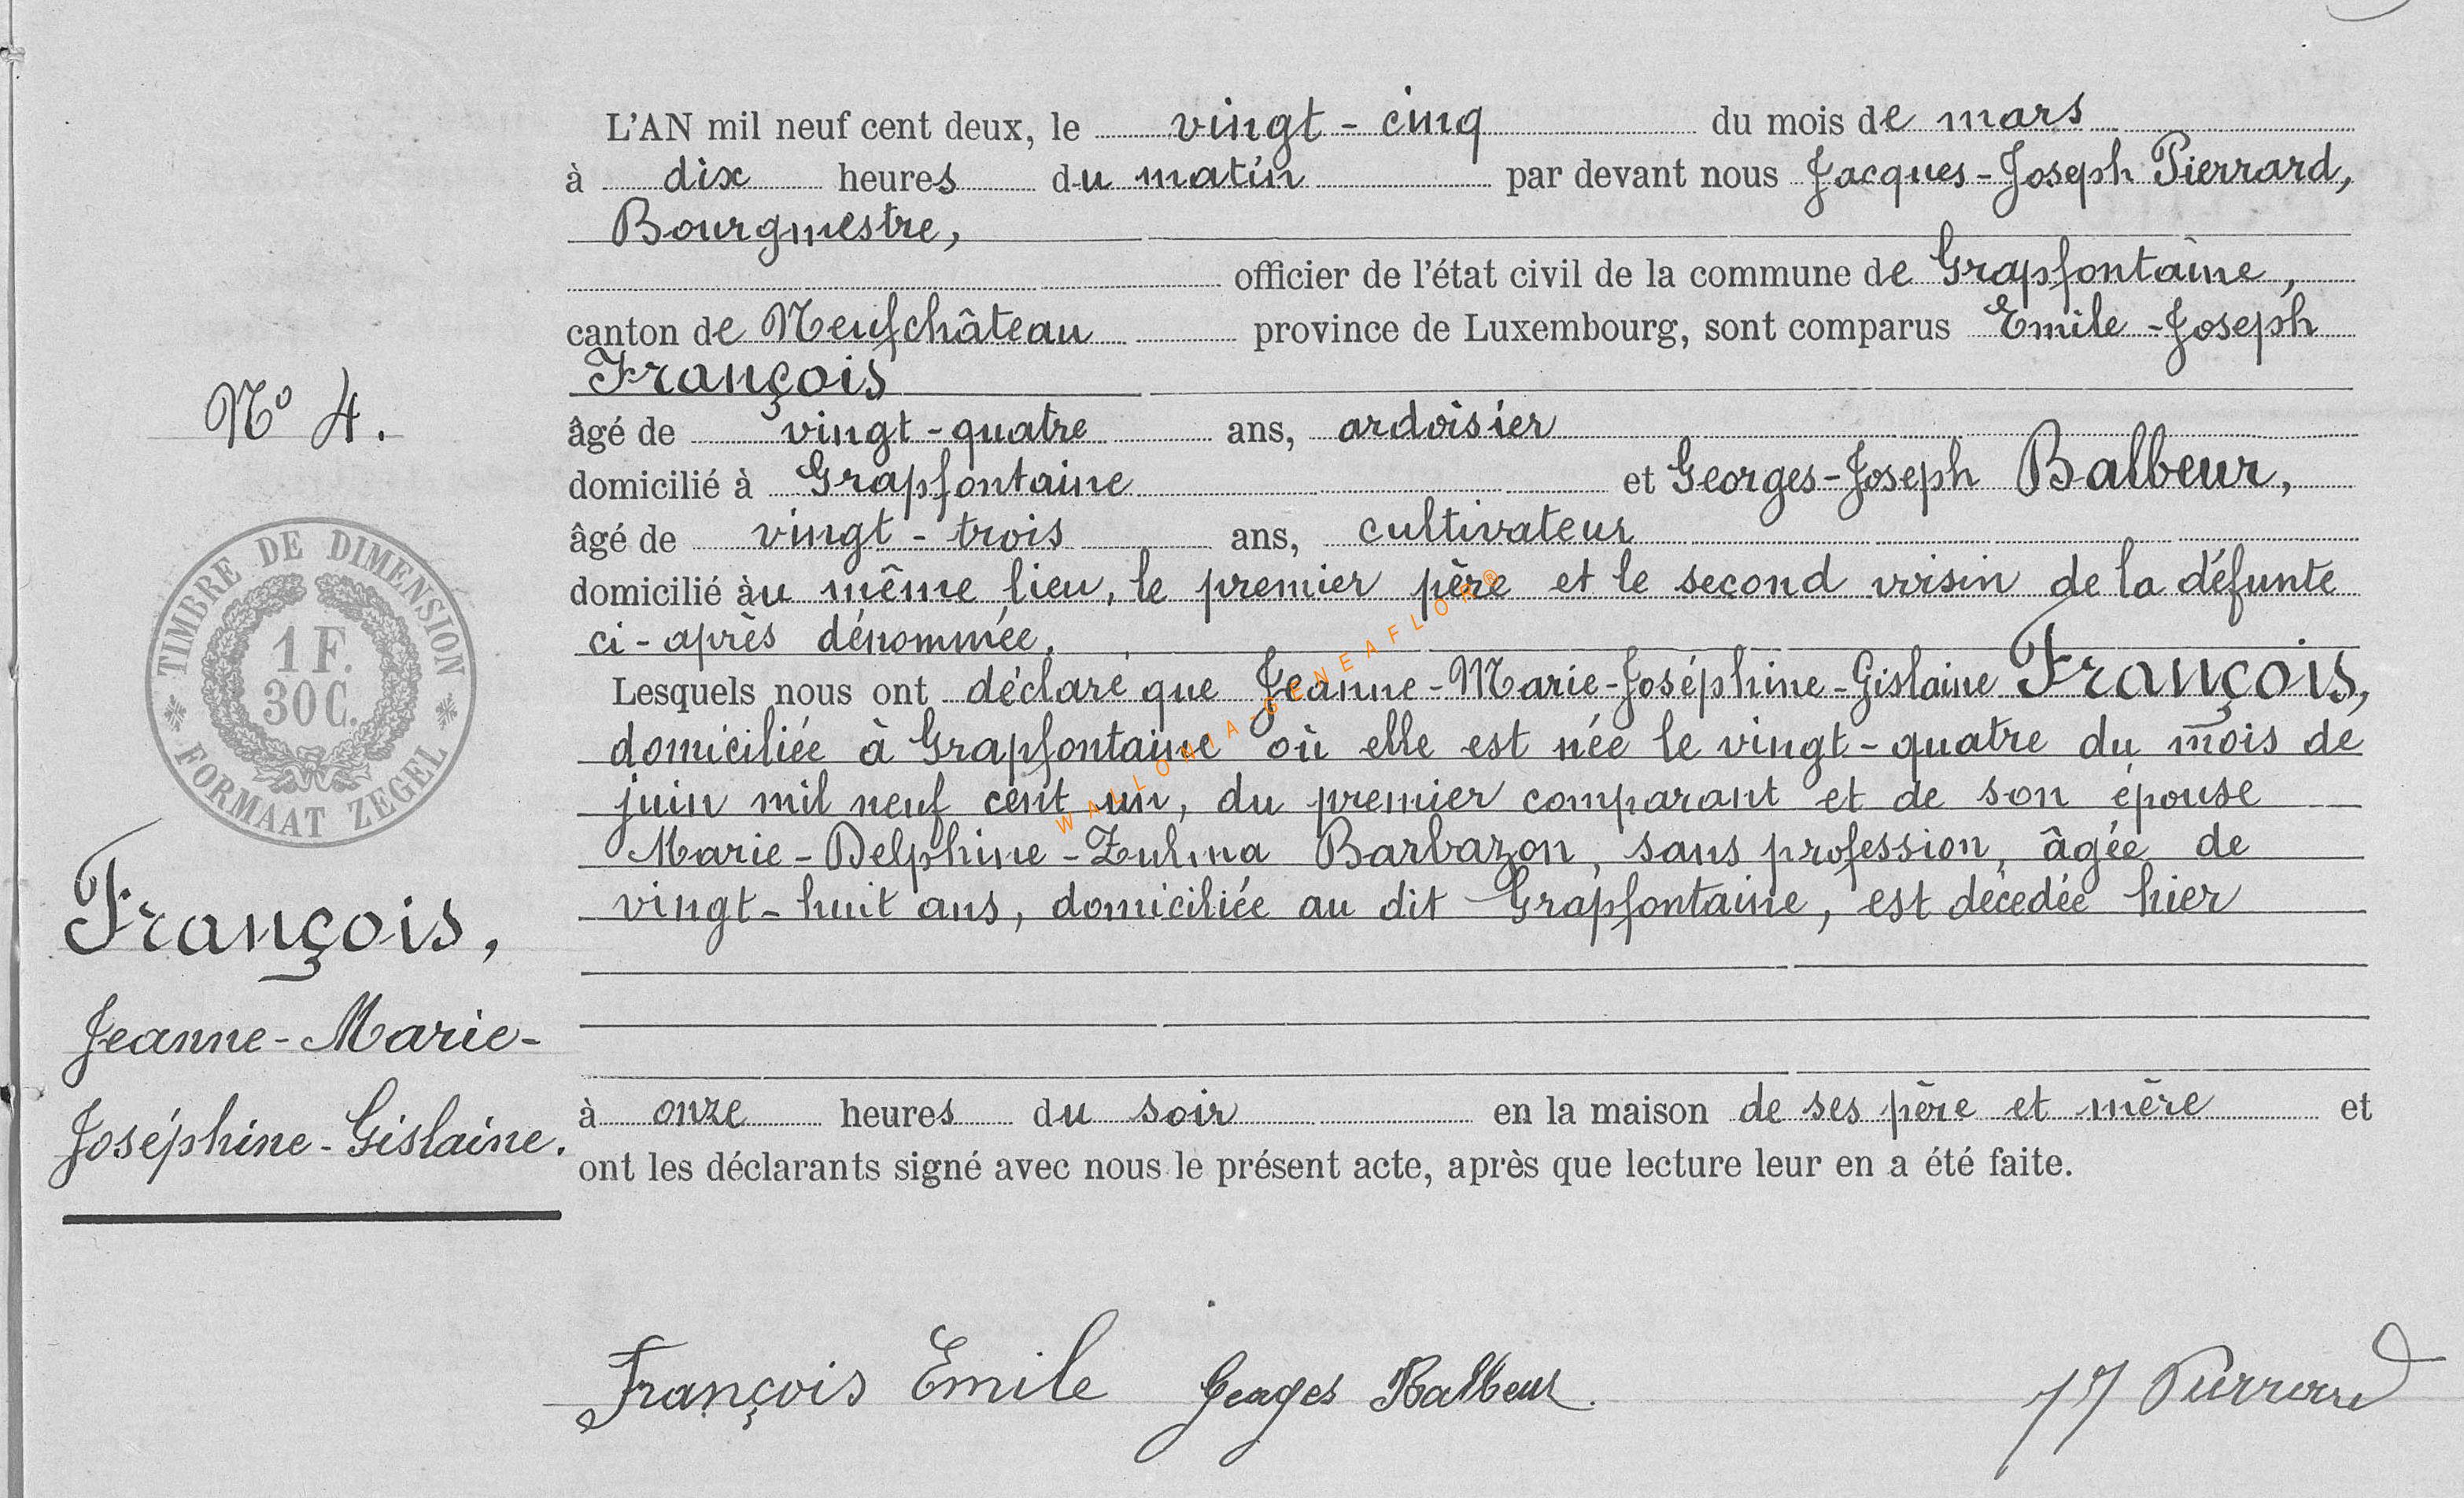 L'AN mil neuf cent deux, le vingt-cinq du mois de mars
à dix heures du matin par devant nous Jacques-Joseph Pierrard,
Bourgmestre,
officier de l'état civil de la commune de Grapfontaine,
canton de Neufchâteau province de Luxembourg, sont comparus Emile-Joseph
François
âgé de vingt-quatre ans, ardoisier
domicilié à Grapfontaine et Georges-Joseph Balbeur,
âgé de vingt-trois ans, cultivateur
domicilié au même lieu, le premier père et le second voisin de la défunte
ci-après dénommée.
Lesquels nous ont déclaré que Jeanne-Marie-Joséphine-Gislaine François,
domiciliée à Grapfontaine où elle est née le vingt-quatre du mois de
juin mil neuf cent un, du premier comparant et de son épouse
Marie-Delphine-Zulma Barbazon, sans profession, âgée de
vingt-huit ans, domiciliée au dit Grapfontaine, est décédée hier
à onze heures du soir en la maison de ses père et mère et
ont les déclarants signé avec nous le présent acte, après que lecture leur en a été faite.
N° 4.
TIMBRE DE DIMENSION
1 F.
30 C.
FORMAAT ZEGEL
François,
Jeanne-Marie-
Joséphine-Gislaine.
WALLONIA-GENEAFLOR®
François Emile Georges Balbeur. JJ Pierrard